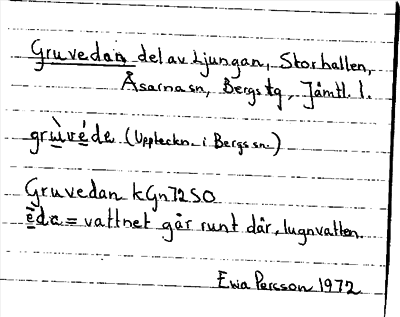 Gruvedan, del av Ljungan, Storhallen,
Åsarna sn, Bergs tg, Jämtl. l.
grùvéde (Uppteckn. i Bergs sn.)
Gruvedan kGn72SO
èda = vattnet går runt där, lugnvatten.
Ewa Persson 1972